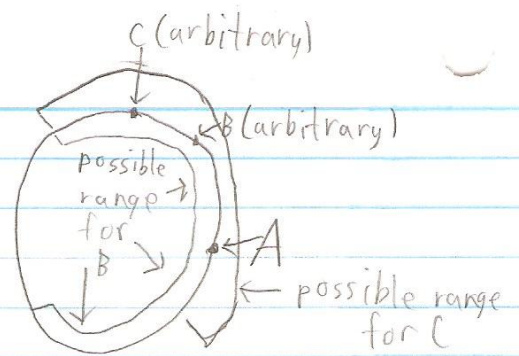 C (arbitrary)
B (arbitrary)
possible
range
for
B
A
possible range
for C